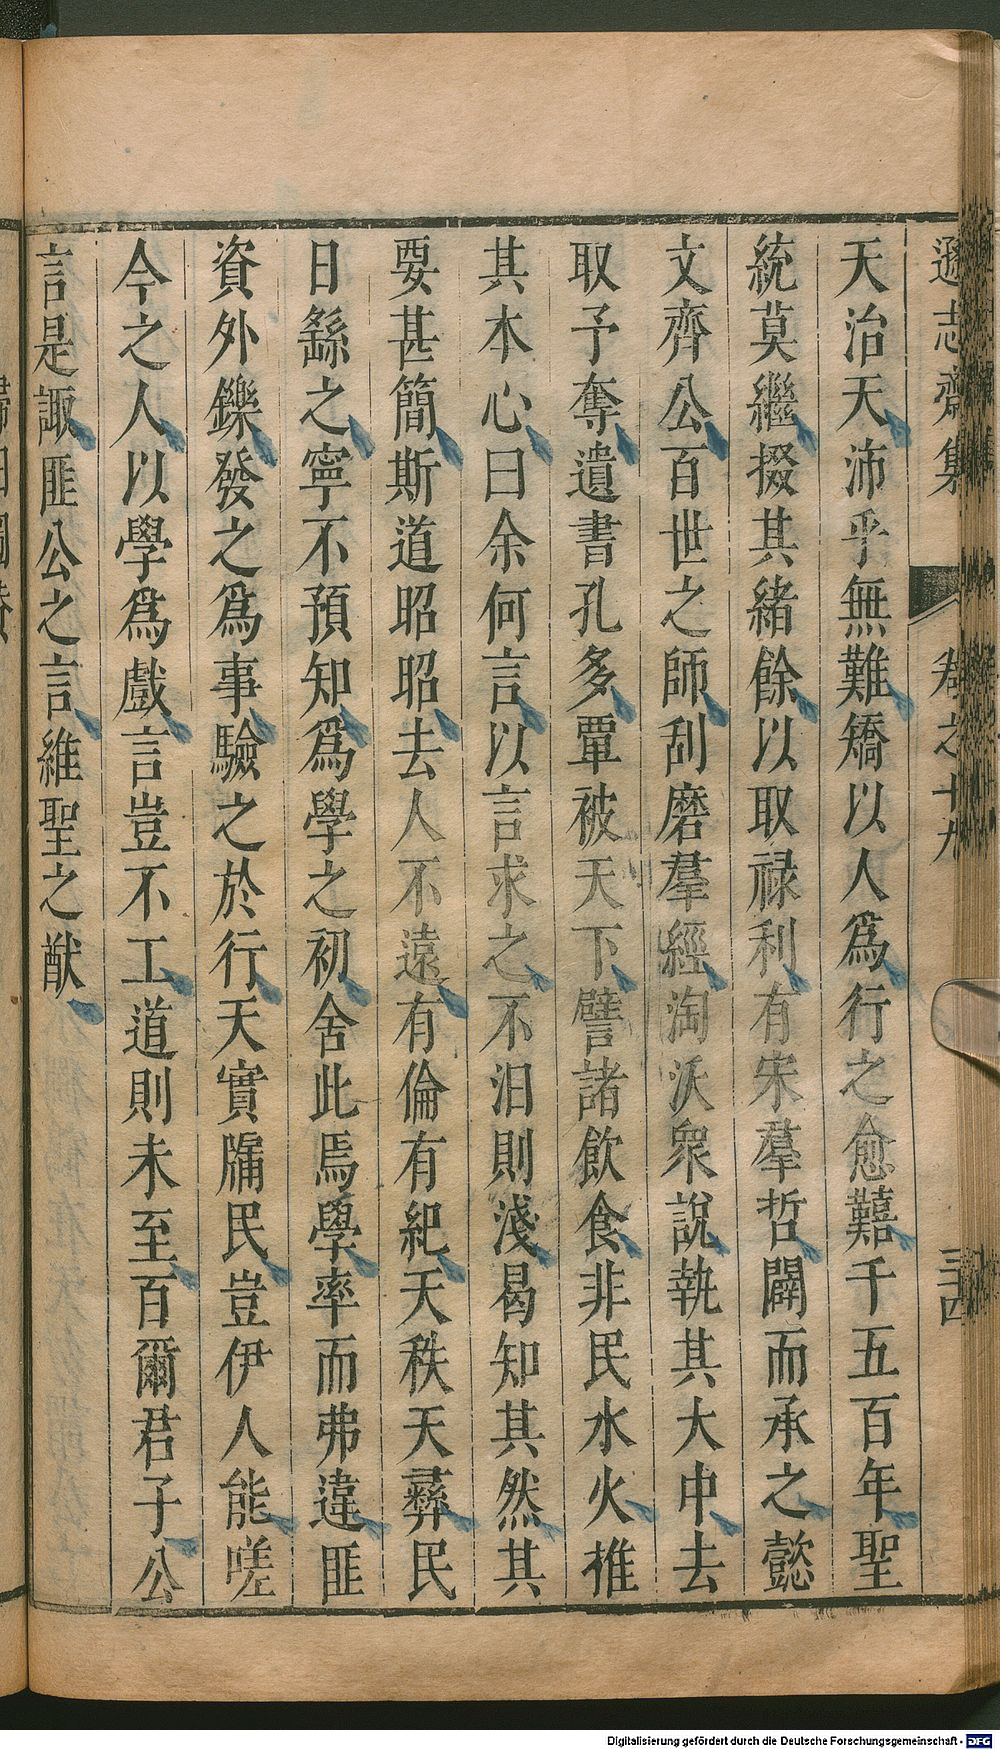 遜志齋集 卷之十九 三十四
天治天沛乎無難矯以人爲行之愈囏千五百年聖
統莫繼掇其緒餘以取祿利有宋羣哲闢而承之懿
文齊公百世之師刮磨羣經淘汰衆說執其大中去
取予奪遺書孔多覃被天下譬諸飲食非民水火推
其本心曰余何言以言求之不汩則淺曷知其然其
要甚簡斯道昭昭去人不遠有倫有紀天秩天彝民
日繇之寧不預知爲學之初舍此焉學率而弗違匪
資外鑠發之爲事驗之於行天實牖民豈伊人能嗟
今之人以學爲戲言豈不工道則未至百爾君子公
言是諏匪公之言維聖之猷
Digitalisierung gefördert durch die Deutsche Forschungsgemeinschaft - DFG